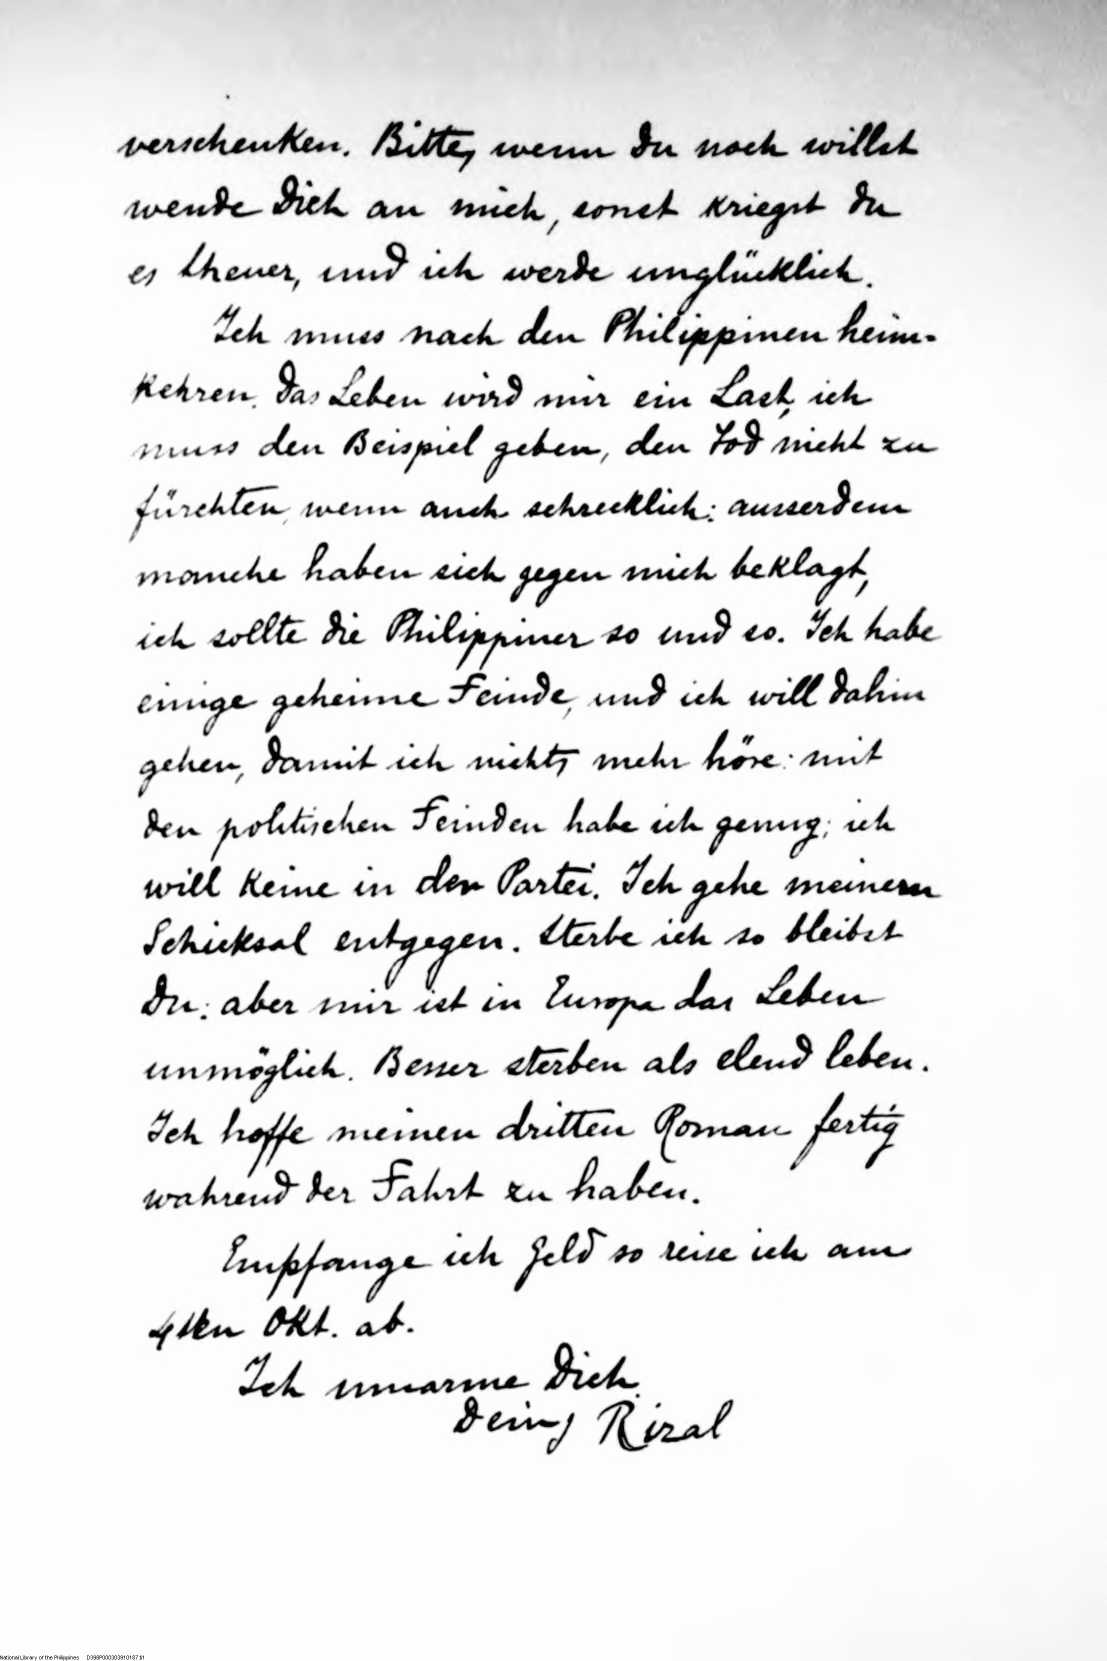 verschenken. Bitte, wenn Du noch willst
wende Dich an mich, sonst kriegst Du
es theuer, und ich werde unglücklich.
Ich muss nach den Philippinen heim-
kehren. Das Leben wird mir ein Last, ich
muss den Beispiel geben, den Tod nicht zu
fürchten, wenn auch schrecklich: ausserdem
manche haben sich gegen mich beklagt,
ich sollte die Philippiner so und so. Ich habe
einige geheime Feinde, und ich will dahin
gehen, damit ich nichts mehr höre: mit
den politischen Feinden habe ich genug; ich
will keine in der Partei. Ich gehe meinem
Schicksal entgegen. Sterbe ich so bleibst
Du: aber mir ist in Europa das Leben
unmöglich. Besser sterben als elend leben.
Ich hoffe meinen dritten Roman fertig
wahrend der Fahrt zu haben.
Empfange ich Geld so reise ich am
4ten Okt. ab.
Ich umarme Dich.
Dein Rizal
National Library of the Philippines D398P00030391018731